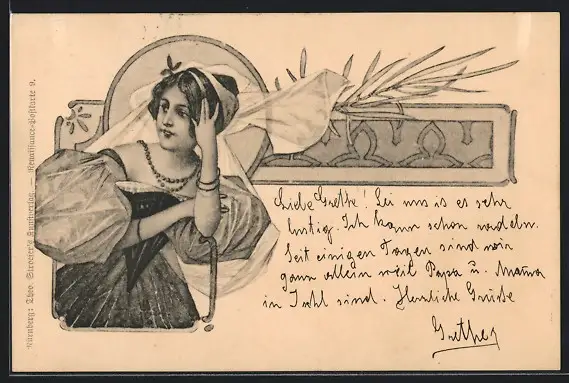 Nürnberg: Theo. Stroefer's Kunstverlag. — Renaissance-Postkarte 9.
Liebe Grethe! Bei uns is es sehr
lustig. Ich kann schon
Seit einigen Tagen sind wir
ganz allein weil Papa u. Mama
in Ischl sind. Herzliche Grüße
Grethe